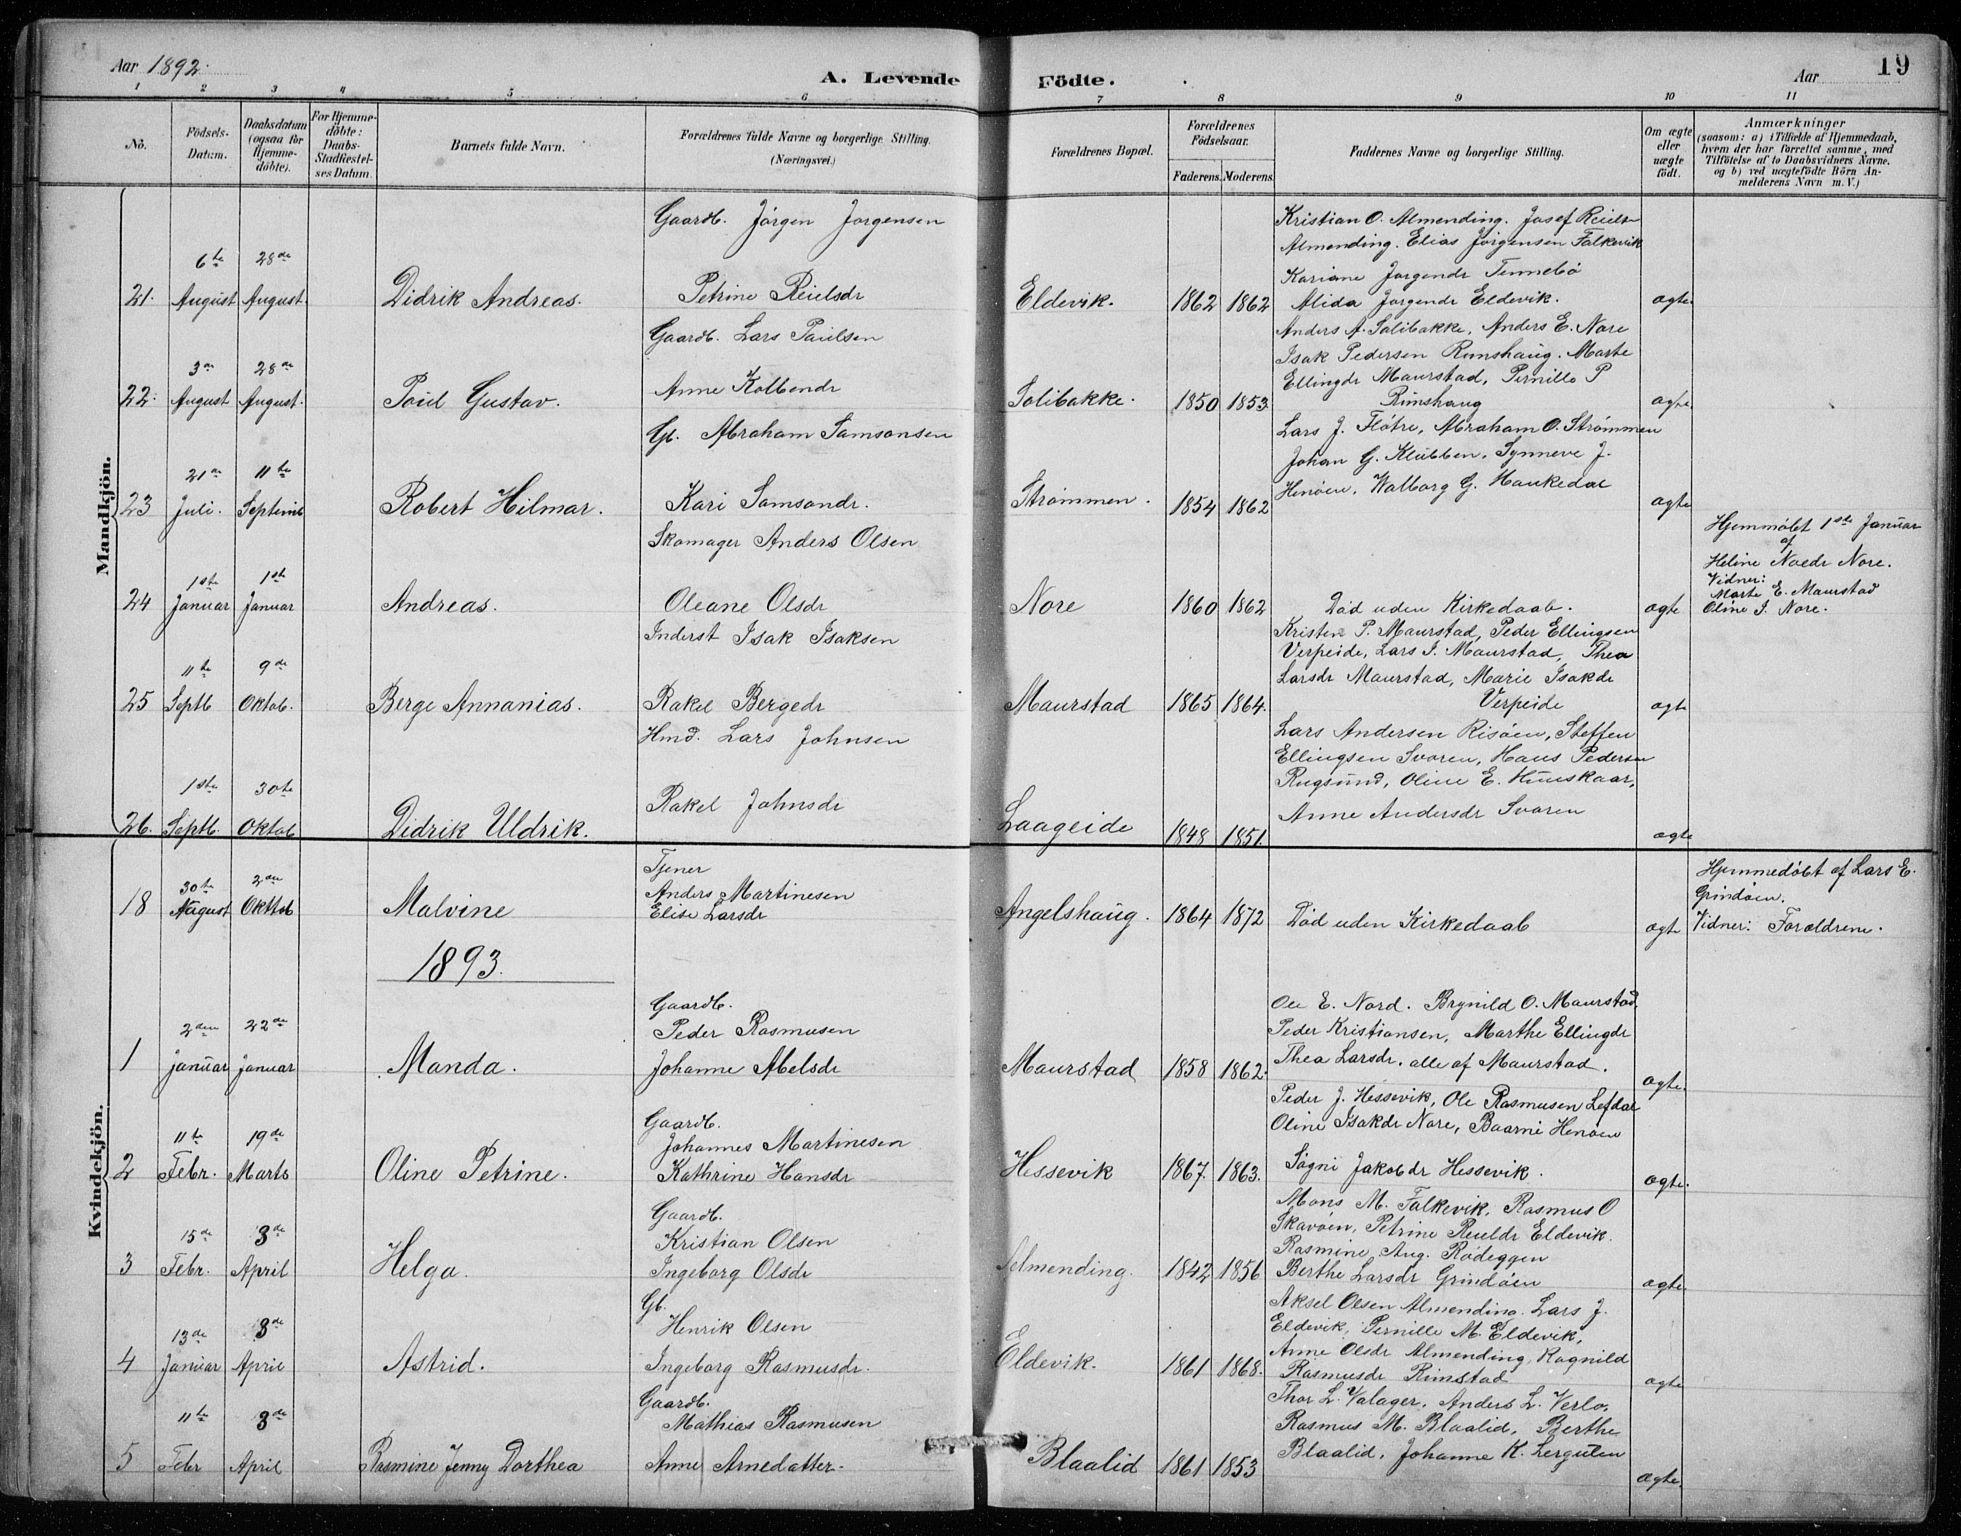 Aar 1892.
A. Levende Födte.
Aar
19
1 2 3 4 5 6 7 8 9 10 11
No.
Födsels-Datum.
Daabsdatum (ogsaa for Hjemme-döbte).
For Hjemme-döbte: Daabs-Stadfæstel-ses Datum.
Barnets fulde Navn.
Forældrenes fulde Navne og borgerlige Stilling. (Næringsvei.)
Forældrenes Bopæl.
Forældrenes Födselsaar.
Faderens. Moderens.
Faddernes Navne og borgerlige Stilling.
Om ægte eller uægte födt.
Anmærkninger
(saasom: a) i Tilfælde af Hjemmedaab, hvem der har forrettet samme, med Tilföielse af to Daabsvidners Navne. og b) ved uægtefödte Börn An-melderens Navn m. V.)
Mandkjön.
21. 6te August 28de August. Didrik Andreas.
Gaardb. Jörgen Jorgensen
Petrine Reielsdr
Eldevik. 1862 1862
Kristian O. Almending. Josef Reielsen
Almending. Elias Jörgensen Falkevik
Kariane Jorgendr Tennebö
Alida Jorgendr Eldevik.
ægte
22. 3die August 28de August. Poul Gustav.
Gaardb. Lars Paulsen
Anne Kolbendr
Solibakke. 1850 1853.
Anders A. Solibakke, Anders E. Nore
Isak Pedersen Rimshaug. Marte
Ellingdr Maurstad, Pernille P
Rimshaug
ægte
23 21de Juli. 11te Septemb Robert Hilmar.
Gb. Abraham Samsonsen
Kari Samsondr.
Strömmen. 1854 1862
Lars J. Flötre, Abraham O. Strömmen
Johan G. Klubben, Synneve J.
Henöen, Walborg G. Haukedal
ægte
24 1ste Januar 1ste Januar Andreas.
Skomager Anders Olsen
Oleane Olsdr
Nore 1860 1862
Död uden Kirkedaab.
ægte
Hjemmöbt 1ste Januar
af
Heline Noedr Nore.
Vidner:
Marte E. Maurstad
Oline I. Nore.
25 11te Septb 9de Oktob. Berge Annanias.
Inderst Isak Isaksen
Rakel Bergedr
Maurstad 1865 1864.
Kristen P. Maurstad, Peder Ellingsen
Verpeide, Lars I. Maurstad, Thea
Larsdr Maurstad, Marie Isakdr
Verpeide
ægte
26. 1ste Septb. 30te Oktob Didrik Uldrik.
Hmd. Lars Johnsen
Rakel Johnsdr
Laageide 1848 1851.
Lars Andersen Risöen, Steffen
Ellingsen Svoren, Hans Pedersen
Rugsund, Oline E. Hunskaar,
Anne Andersdr Svoren
ægte
Kvindekjön.
18 30te August 2den Oktob Malvine
Tjener
Anders Martinesen
Elise Larsdr
Angelshaug. 1864 1872
Död uden Kirkedaab
ægte
Hjemmedöbt af Lars E.
Grindöen.
Vidner: Forældrene.
1893.
1 2den januar 22de januar Manda.
Gaardb.
Peder Rasmusen
Johanne Abelsdr
Maurstad 1858 1862.
Ole E. Nord. Brynild O. Maurstad
Peder Kristiansen, Marthe Ellingdr
Thea Larsdr. alle af Maurstad.
ægte.
2 11te Febr. 19de Marts Oline Petrine.
Gaardb.
Johannes Martinesen
Kathrine Hansdr
Hessevik 1867. 1863.
Peder J. Hessevik, Ole Rasmusen Lefdal
Oline Isakdr Nore, Baarni Henöen
Sögni Jakobdr Hessevik.
ægte.
3 15de Febr. 3de April Helga.
Gaardb.
Kristian Olsen
Ingeborg Olsdr
Almending. 1842 1856
Mons M. Falkevik, Rasmus O
Skavöen, Petrine Reieldr Eldevik.
Rasmine Aug. Rödeggen
Berthe Larsdr Grindöen
ægte.
4 13de Januar 3de April Astrid.
Gb.
Henrik Olsen
Ingeborg Rasmusdr.
Eldevik. 1861 1868.
Aksel Olsen Almending. Lars J.
Eldevik, Pernille M. Eldevik,
Anne Olsdr Almending, Ragnild
Rasmusdr Rimstad
ægte
5 11te Febr 3de April Rasmine Jenny Dorthea
Gaardb.
Mathias Rasmusen
Anne Arnedatter.
Blaalid 1861 1853
Thor L. Valager, Anders L. Verlo,
Rasmus M. Blaalid, Berthe
Blaalid, Johanne K. Lerguten
ægte.